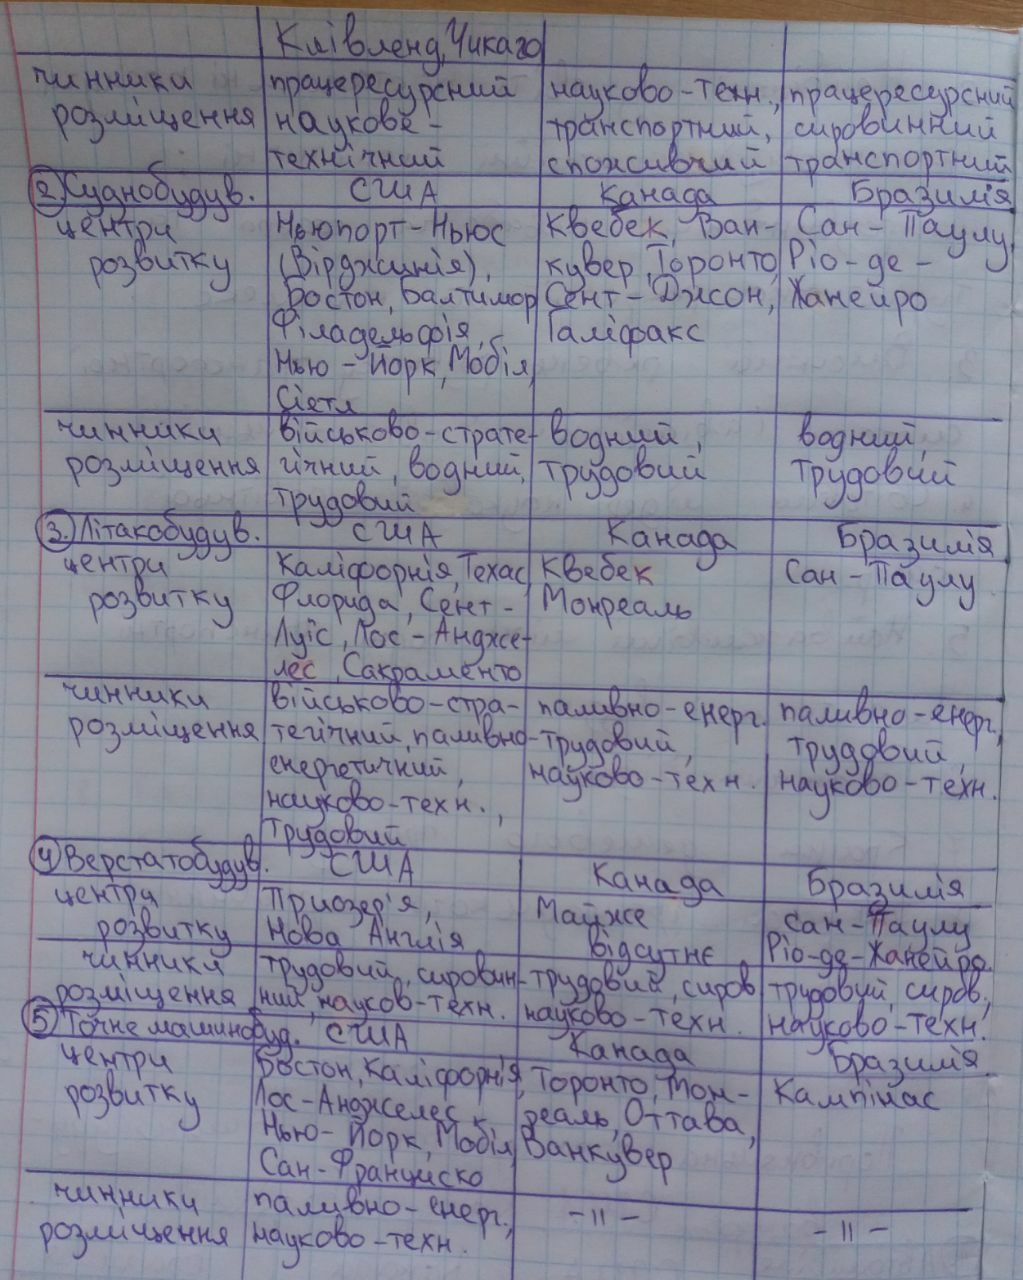 Клівленд, Чикаго
чинники розміщення
працересурсний
наукове-
технічний
науково-техн.,
транспортний,
споживчий
працересурсний
сировинний
транспортний
2. Суднобудув. США Канада Бразилія
центри
розвитку
Ньюпорт-Ньюс
(Вірджинія),
Бостон, Балтимор
Філадельфія,
Нью-Йорк, Мобіл,
Сіетл
Квебек, Ван-
кувер, Торонто,
Сент-Джон,
Галіфакс
Сан-Паулу,
Ріо-де-
Жанейро
чинники
розміщення
військово-страте-
гічний, водний,
трудовий
водний,
трудовий
водний,
трудовий
3. Літакобудув. США Канада Бразилія
центри
розвитку
Каліфорнія, Техас,
Флорида, Сент-
Луїс, Лос-Андже-
лес, Сакраменто
Квебек
Монреаль
Сан-Паулу
чинники
розміщення
військово-стра-
тегічний, паливно-
енергетичний,
науково-техн.,
трудовий
паливно-енерг.
трудовий,
науково-техн.
паливно-енерг,
трудовий,
науково-техн.
4 Верстатобудув. США Канада Бразилія
центри
розвитку
Приозер'я,
Нова Англія
Майже
відсутнє
Сан-Паулу
Ріо-де-Жанейро.
чинники
розміщення
трудовий, сировин-
ний, науков-техн.
трудовий, сиров
науково-техн.
трудовий, сиров.,
науково-техн.
5 Точне машинобуд. США Канада Бразилія
центри
розвитку
Бостон, Каліфорнія,
Лос-Анджелес,
Нью-Йорк, Мобіл,
Сан-Франциско
Торонто, Мон-
реаль, Оттава,
Ванкувер
Кампінас
чинники
розміщення
паливно-енерг.,
науково-техн.
-||-
-||-